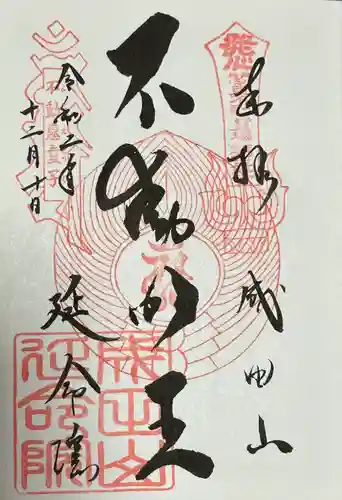 奉拝 成田山
不動明王
令和二年
十二月十日
延命院